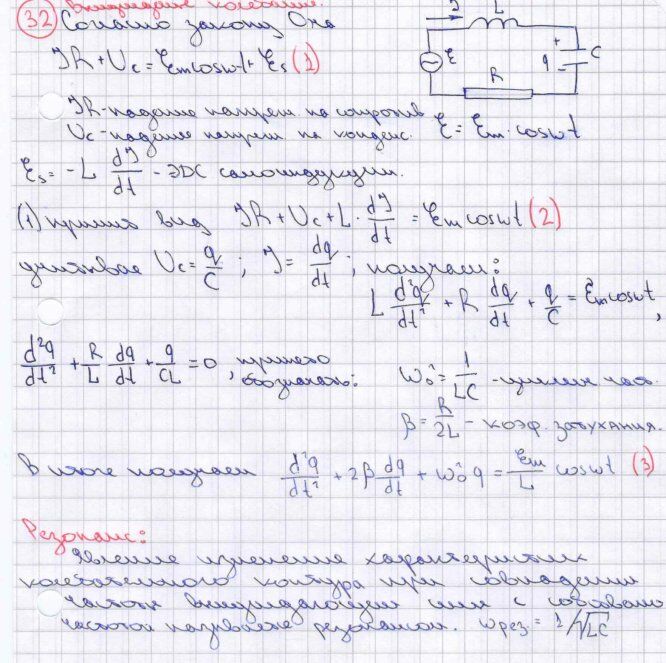 32 Вынужденные колебания.
Согласно закону Ома
I L
IR + Uc = Ɛm cosωt + Ɛs (1)
Ɛ + q - C
R
IR - падение напряж. на сопротив
Uc - падение напряж на конденс. Ɛ = Ɛm · cosωt
Ɛs = -L dI/dt - ЭДС самоиндукции.
(1) примет вид IR + Uc + L · dI/dt = Ɛm cosωt (2)
учитывая Uc = q/C ; I = dq/dt ; получаем:
L d²q/dt² + R dq/dt + q/C = Ɛm cosωt,
d²q/dt² + R/L dq/dt + q/CL = 0, принято обозначать: ω₀² = 1/LC - циклич част.
β = R/2L - коэф. затухания.
В итоге получаем d²q/dt² + 2β dq/dt + ω₀² q = Ɛm/L cosωt (3)
Резонанс:
Явление изменения характеристик
колебательного контура при совпадении
частоты вынуждающей силы с собствено
частотой называется резонансом. ωрез = 1/√LC